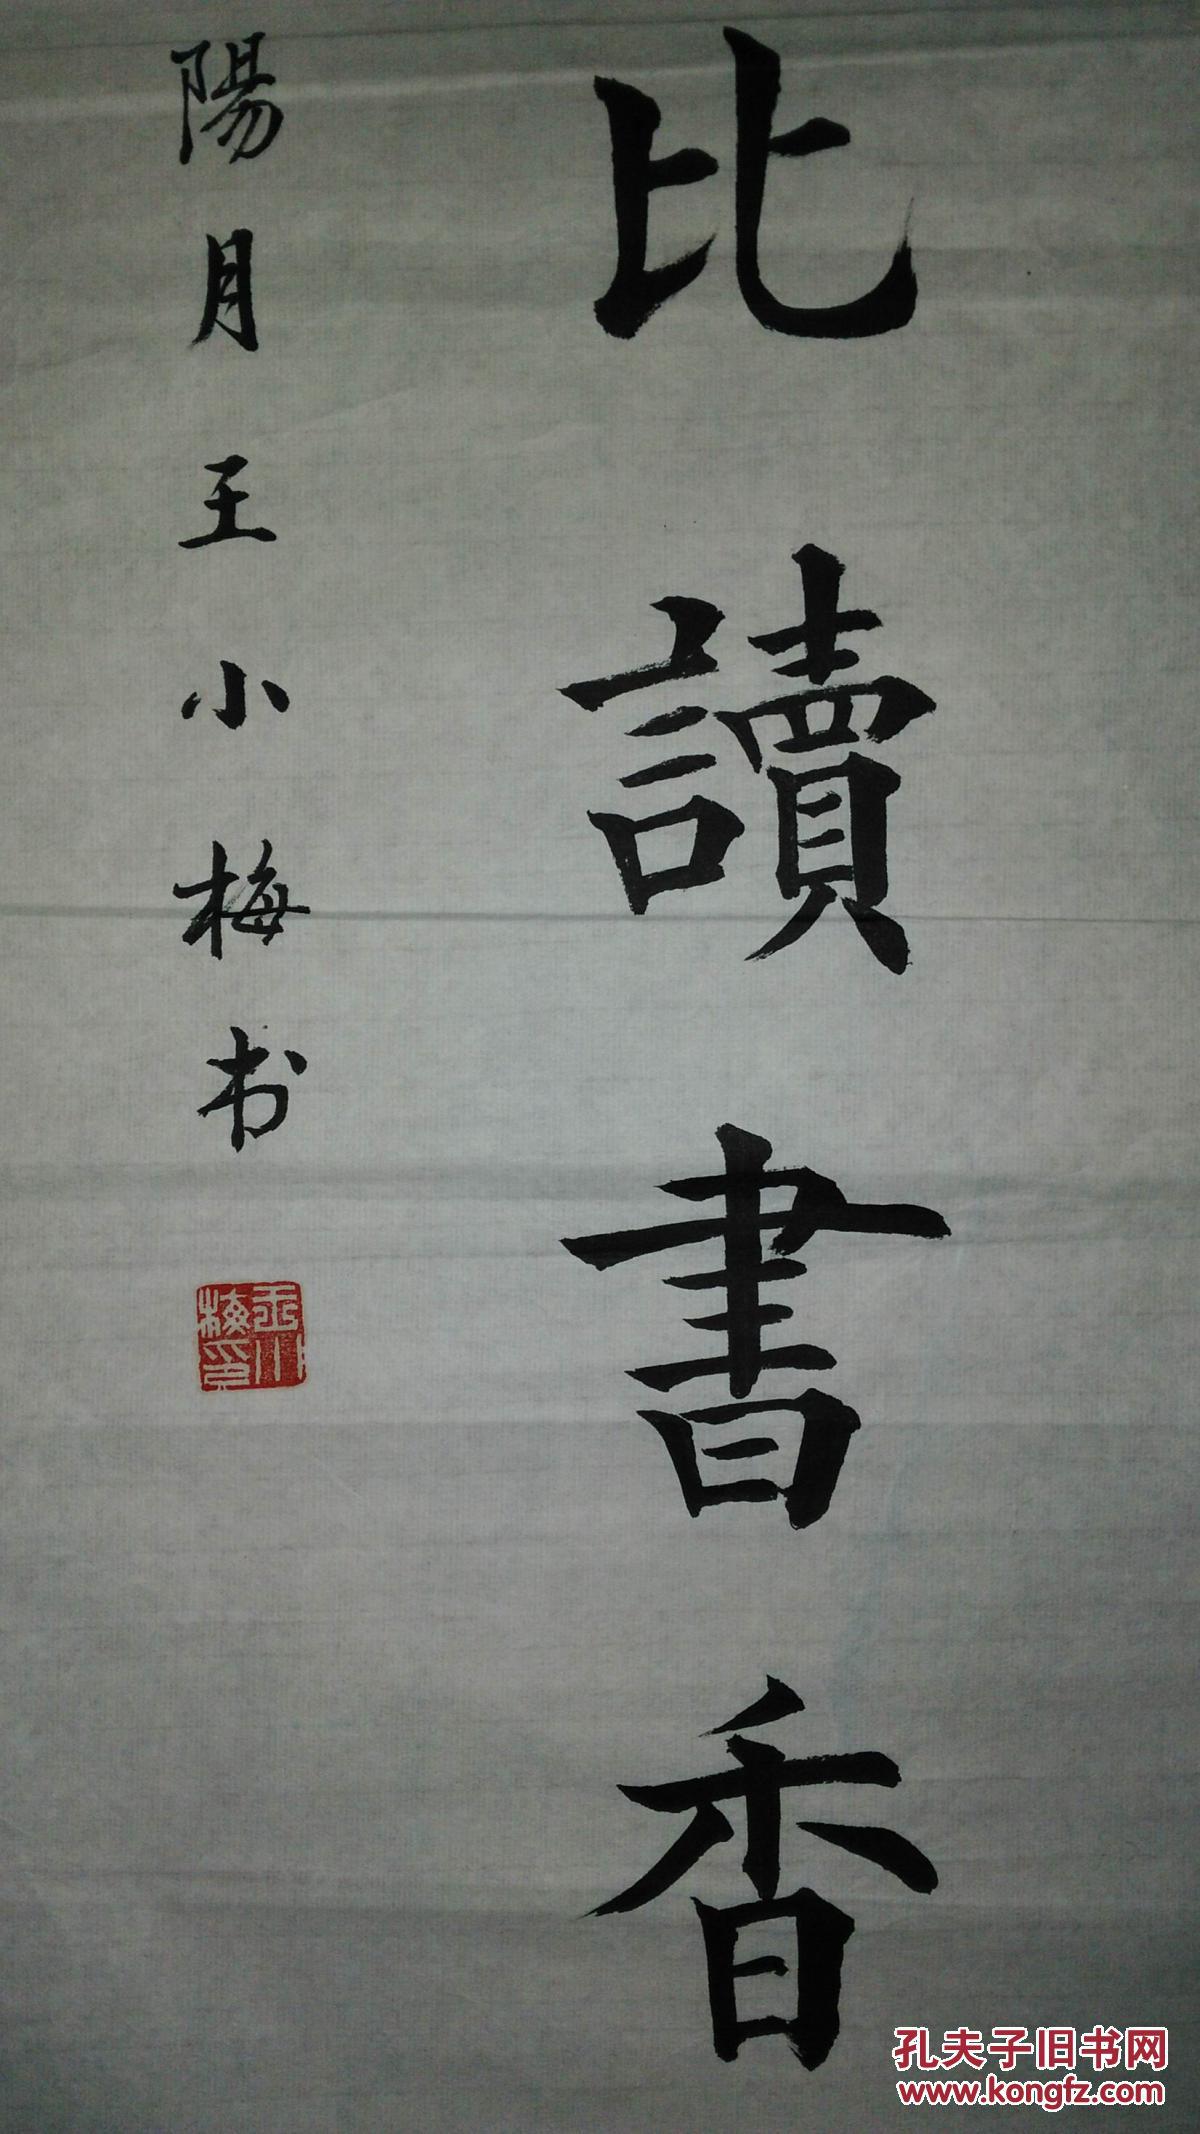 比讀書香
陽月王小梅书
王小梅印
孔夫子旧书网
www.kongfz.com